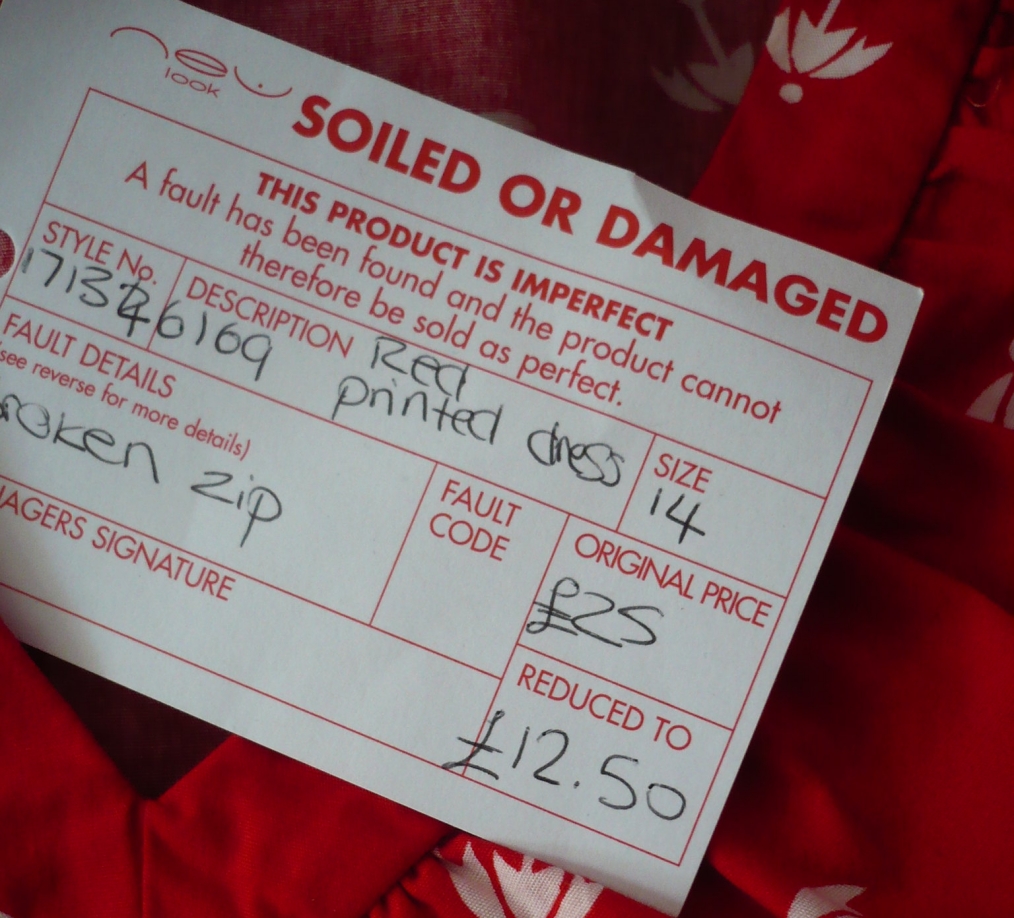 new
look
SOILED OR DAMAGED
THIS PRODUCT IS IMPERFECT
A fault has been found and the product cannot
therefore be sold as perfect.
STYLE No.
DESCRIPTION
Red
printed dress
SIZE
14
FAULT DETAILS
(see reverse for more details)
roken zip
FAULT
CODE
ORIGINAL PRICE
£25
AGERS SIGNATURE
REDUCED TO
£12.50